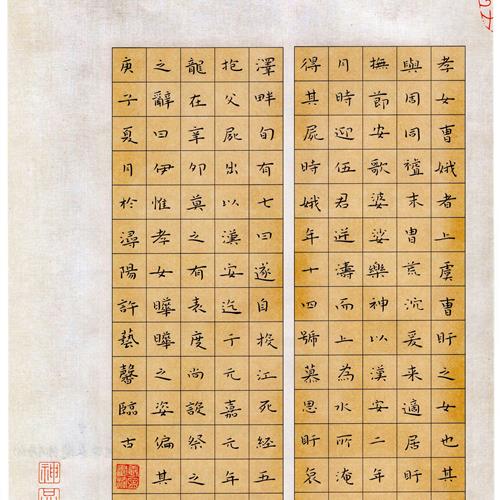 孝女曹娥者上虞曹盱之女也其
與周同禮末冑荒沉爰来適居盱
撫節安歌婆娑樂神以漢安二年
月時迎伍君逆濤而上為水所淹
得其屍時娥年十四號慕思盱哀
澤畔旬有七日遂自投江死経五
抱父屍出以漢安迄于元嘉元年
龍在辛卯莫之有表度尚設祭之
之辭曰伊惟孝女曄曄之姿偏其
庚子夏月於潯陽許藝馨臨古